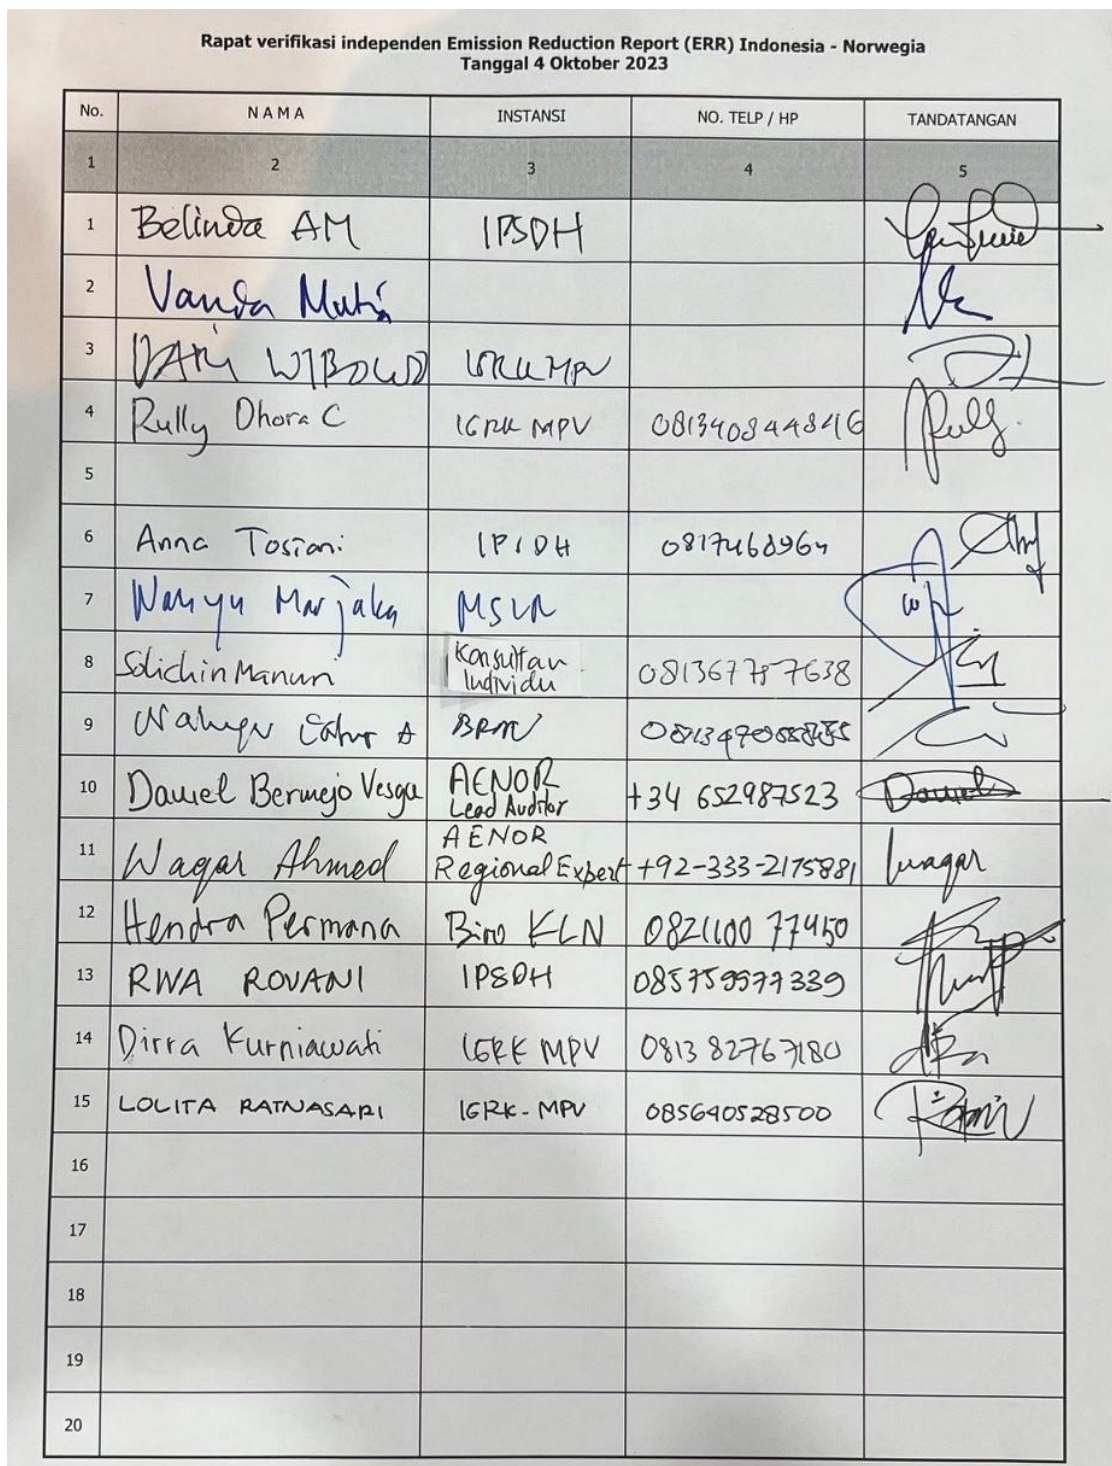 Rapat verifikasi independen Emission Reduction Report (ERR) Indonesia - Norwegia
Tanggal 4 Oktober 2023
No. NAMA INSTANSI NO. TELP / HP TANDATANGAN
1 2 3 4 5
1 Belinda AM IPSDH
2 Vanda Mutia
3 WIBOWO
4 Rully Dhora C IGRK MPV 081340844846
5
6 Anna Tosiani IPSDH 0817468964
7 Wahyu Marjaka
8 Solichin Manuri Konsultan
Individu
9 Wahyu
10 Daniel Bermejo Vesga AENOR +34 652987523 Daniel
Lead Auditor
11 Waqar Ahmed AENOR
Regional Expert +92-333-2175881 waqar
12 Hendra Permana Biro KLN 082110077450
13 RWA ROVANI IPSDH 085759977339
14 Dirra Kurniawati IGRK MPV 0813 82767180
15 LOLITA RATNASARI IGRK-MPV 085640528500
16
17
18
19
20